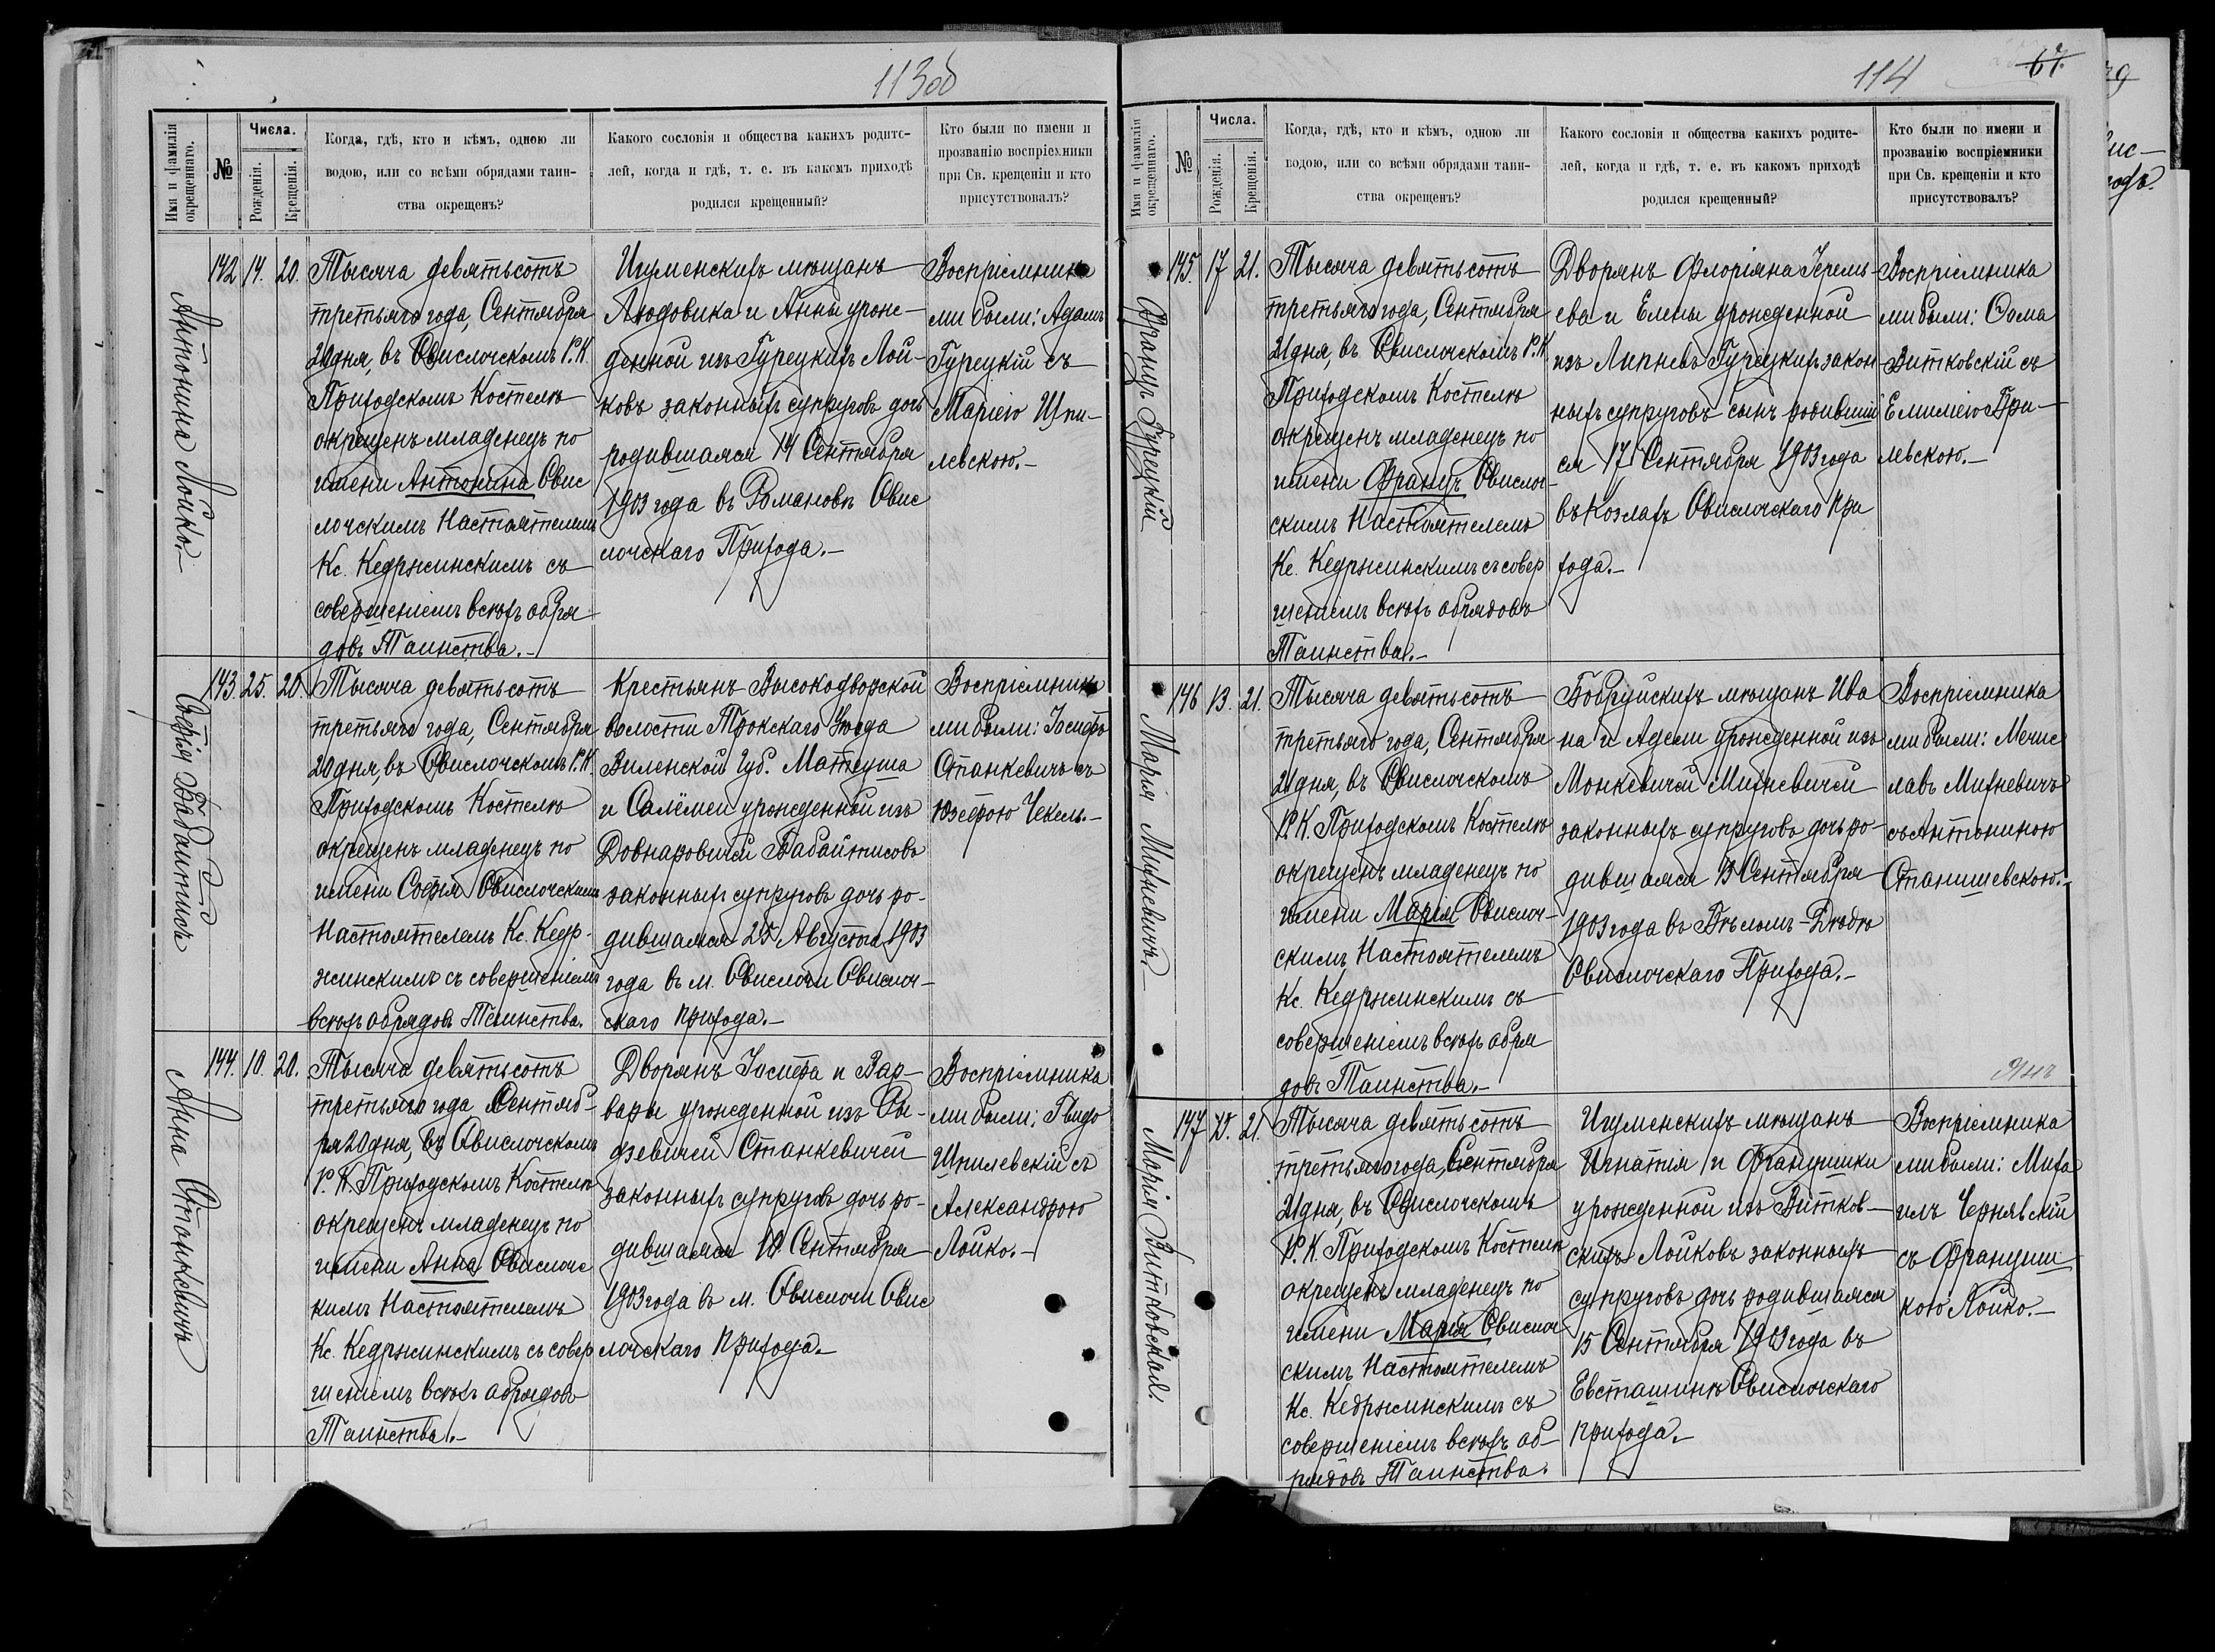 113об
Имя и фамилія окрещеннаго.
№
Числа.
Рожденія.
Крещенія.
Когда, гдѣ, кто и кѣмъ, одною ли
водою, или со всѣми обрядами таин-
ства окрещенъ?
Какого сословія и общества какихъ родите-
лей, когда и гдѣ, т. е. въ какомъ приходѣ
родился крещенный?
Кто были по имени и
прозванію воспріемники
при Св. крещеніи и кто
присутствовалъ?
Антонина Лойко.-
142
14.
20.
Тысяча девятьсотъ
третьяго года, Сентября
20 дня, въ Свислочскомъ Р.К.
Приходскомъ Костелѣ
окрещенъ младенецъ по
имени Антонина Свис
лочскимъ Настоятелемъ
Кс. Кедржинскимъ съ
совершеніемъ всѣхъ обря
довъ Таинства.-
Игуменскихъ мѣщанъ
Людовика и Анны урож-
денной изъ Гурецкихъ Лой-
ковъ законныхъ супруговъ дочь
родившаяся 14 Сентября
1903 года въ Романовкѣ Свис
лочскаго Прихода.-
Воспріемника
ми были: Адамъ
Гурецкій съ
Маріею Шпи-
левскою.-
Софія Бабайтисъ
143.
25.
20.
Тысяча девятьсотъ
третьяго года, Сентября
20 дня, въ Свислочскомъ Р.К.
Приходскомъ Костелѣ
окрещенъ младенецъ по
имени Софія Свислочскимъ
Настоятелемъ Кс. Кедр-
жинскимъ съ совершеніемъ
всѣхъ обрядовъ Таинства.
Крестьянъ Высокодворской
волости Трокскаго Уѣзда
Виленской Губ. Матеуша
и Саломеи урожденной изъ
Довнаровичей Бабайтисовъ
законныхъ супруговъ дочь ро-
дившаяся 25 Августа 1903
года въ м. Свислочи Свислоч-
скаго прихода.-
Воспріемника
ми были: Іосифъ
Станкевичъ съ
Юзефою Чекель.-
Анна Станкевичъ
144.
10.
20.
Тысяча девятьсотъ
третьяго года Сентяб-
ря 20 дня, въ Свислочскомъ
Р. К. Приходскомъ Костелѣ
окрещенъ младенецъ по
имени Анна Свислочс
кимъ Настоятелемъ
Кс. Кедржинскимъ съ совер
шеніемъ всѣхъ обрядовъ
Таинства.-
Дворянъ Іосифа и Вар-
вары урожденной изъ
Станкевичей
законныхъ супруговъ дочь ро-
дившаяся 10 Сентября
1903 года въ м. Свислочи Свис
лочскаго прихода.-
Воспріемника
ми были: Гвидо
Шпилевскій съ
Александрою
Лойко.-
114
67.
Имя и фамилія окрещеннаго.
№
Числа.
Рожденія.
Крещенія.
Когда, гдѣ, кто и кѣмъ, одною ли
водою, или со всѣми обрядами таин-
ства окрещенъ?
Какого сословія и общества какихъ родите-
лей, когда и гдѣ, т. е. въ какомъ приходѣ
родился крещенный?
Кто были по имени и
прозванію воспріемники
при Св. крещеніи и кто
присутствовалъ?
Францъ Гурецкій
145.
17
21.
Тысяча девятьсотъ
третьяго года, Сентября
21 дня, въ Свислочскомъ Р.К.
Приходскомъ Костелѣ
окрещенъ младенецъ по
имени Францъ Свислоч-
скимъ Настоятелемъ
Кс. Кедржинскимъ съ совер
шеніемъ всѣхъ обрядовъ
Таинства.-
Дворянъ Флоріяна Іеремѣ-
ева и Елены урожденной
изъ Гурецкихъ закон
ныхъ супруговъ сынъ родившій
ся 17 Сентября 1903 года
въ Козлахъ Свислочскаго При
хода.-
Воспріемника
ми были: Ѳома
Витковскій съ
Емиліею
левскою.-
Марія Михневичъ.-
146
13.
21.
Тысяча девятьсотъ
третьяго года, Сентября
21 дня, въ Свислочскомъ
Р.К. Приходскомъ Костелѣ
окрещенъ младенецъ по
имени Марія Свислоч-
скимъ Настоятелемъ
Кс. Кедржинскимъ съ
совершеніемъ всѣхъ обря
довъ Таинства.-
Бобруйскихъ мѣщанъ Ива
на и Адели урожденной изъ
Монкевичей Михневичей
законныхъ супруговъ дочь ро-
дившаяся 13 Сентября
1903 года въ Бѣломъ-
Свислочскаго Прихода.-
Воспріемника
ми были: Мечис
лавъ Михневичъ
съ Антониною
Станишевскою.-
Марія Витковская.
147
15.
21.
Тысяча девятьсотъ
третьяго года, Сентября
21 дня, въ Свислочскомъ
Р.К. Приходскомъ Костелѣ
окрещенъ младенецъ по
имени Марія Свислоч
скимъ Настоятелемъ
Кс. Кедржинскимъ съ
совершеніемъ всѣхъ об-
рядовъ Таинства.
Игуменскихъ мѣщанъ
Игнатія и Францишки
урожденной изъ Витков-
скихъ Лойковъ законныхъ
супруговъ дочь родившаяся
15 Сентября 1903 года въ
Евсташинѣ Свислочскаго
прихода.-
Воспріемника
ми были: Миха
илъ Чернявскій
съ Францишь
кою Лойко.-